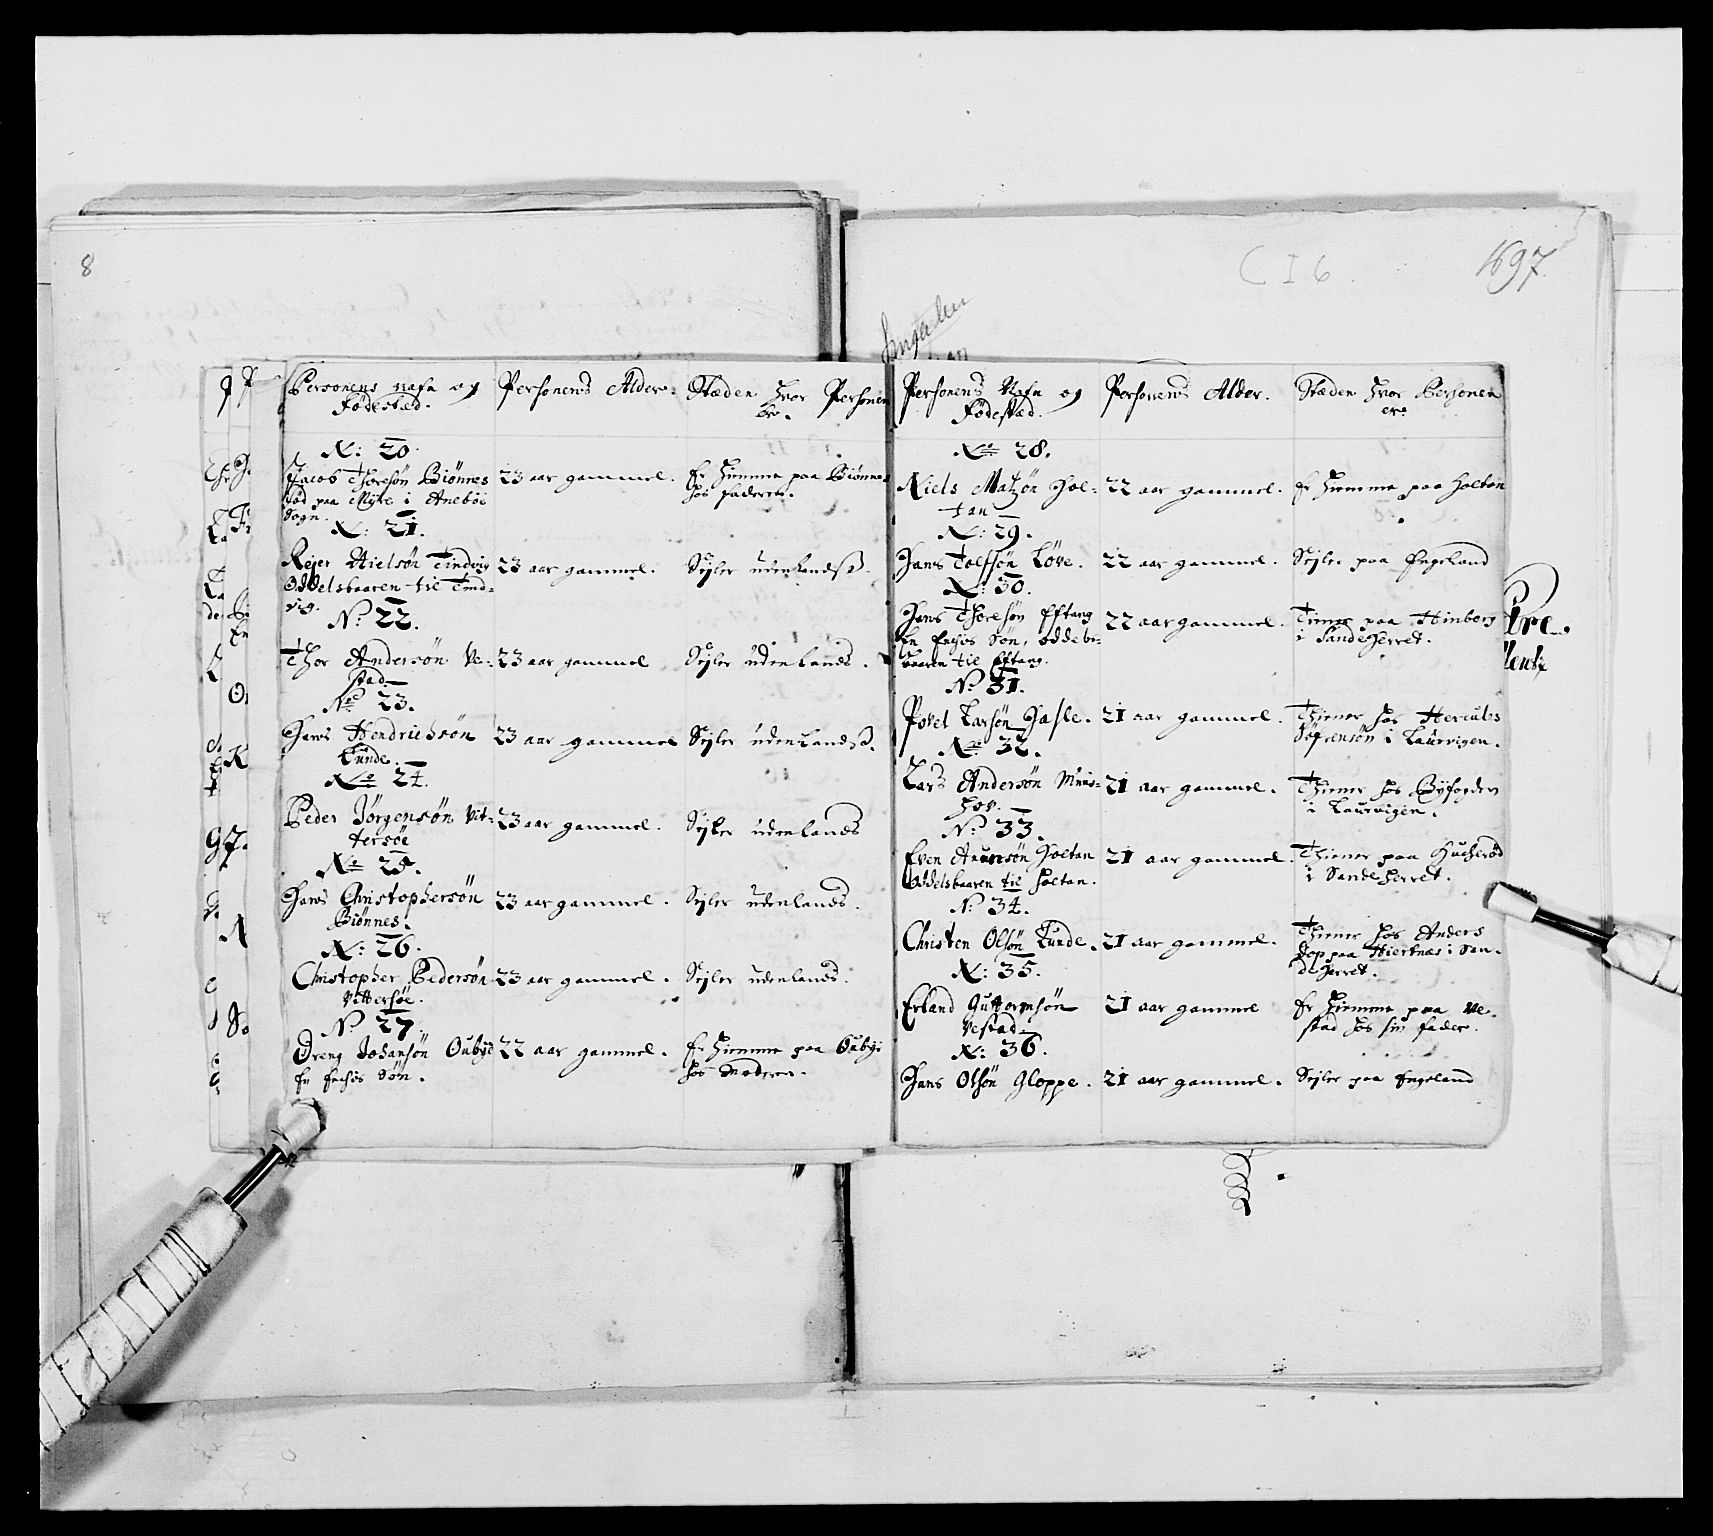 8
C I 6
1697
Personens nafn og Födestæd.
Personens Alder.
Stæden hvor Personen er.
N: 20.
Jacob Thoresön Biönnes
fød paa Myre i Anebôe
Sogn.
23 aar gammel.
Er hiemme paa Biönnes
hos faderen.
N: 21.
Reier Nielsön Tindvig
Oddelsbaaren til Tind-
vig.
23 aar gammel.
Sejler udenLands.
N: 22.
Thor Andersön Ve-
stad.
23 aar gammel
Sejler udenLands.
No 23.
Hans Hendrichsön
Lunde.
23 aar gammel
Sejler udenLands.
No 24.
Peder Jörgensön Vit-
tersöe
23 aar gammel.
Sejler udenlands
No 25.
Hans Christophersön
Biönnes.
23 aar gammel.
Sejler udenlands.
N: 26.
Christopher Pedersön
Vittersöe.
23 aar gammel.
Sejler udenlands.
No 27
Dreng Johansön Oubÿe
En Enchis Sön.
22 aar gammel.
Er hiemme paa Oubÿe
hos Moderen.
Personens Nafn og
Födestæd.
Personens Alder.
Stæden hvor Personen
er.
No 28.
Niels Matzön Hol-
tan
22 aar gammel.
Er hiemme paa Holtan
N: 29.
Hans Tolfsön Löve.
22 aar gammel.
Sejler paa Engeland
N: 30.
Hans Thoresön Eftang
En Enchis Sön, oddels-
baaren til Eftang.
22 aar gammel.
Tiener paa Himberg
i Sandeherret.
No 31.
Povel Larsön Hasle.
21 aar gammel.
Thiener hos Hercules
Söfrensön i Laurvigen.
No 32.
Lars Andersön Mun-
hov.
21 aar gammel.
Thiener hos Byfogden
i Laurvigen.
No 33.
Even Anunsön Holtan
Oddelsbaaren til Holtan.
21 aar gammel.
Thiener paa Hucheröd
i Sandeherret.
N: 34.
Christen Olsön Lunde.
21 aar gammel.
Thiener hos Anders
Jop paa Hiertnæs i San-
deherret.
N: 35.
Erland Guttormsön
Vestad.
21 aar gammel
Er hiemme paa Ve-
stad hos sin fader.
N: 36.
Hans Olsön Gloppe.
21 aar gammel.
Sejler paa Engeland